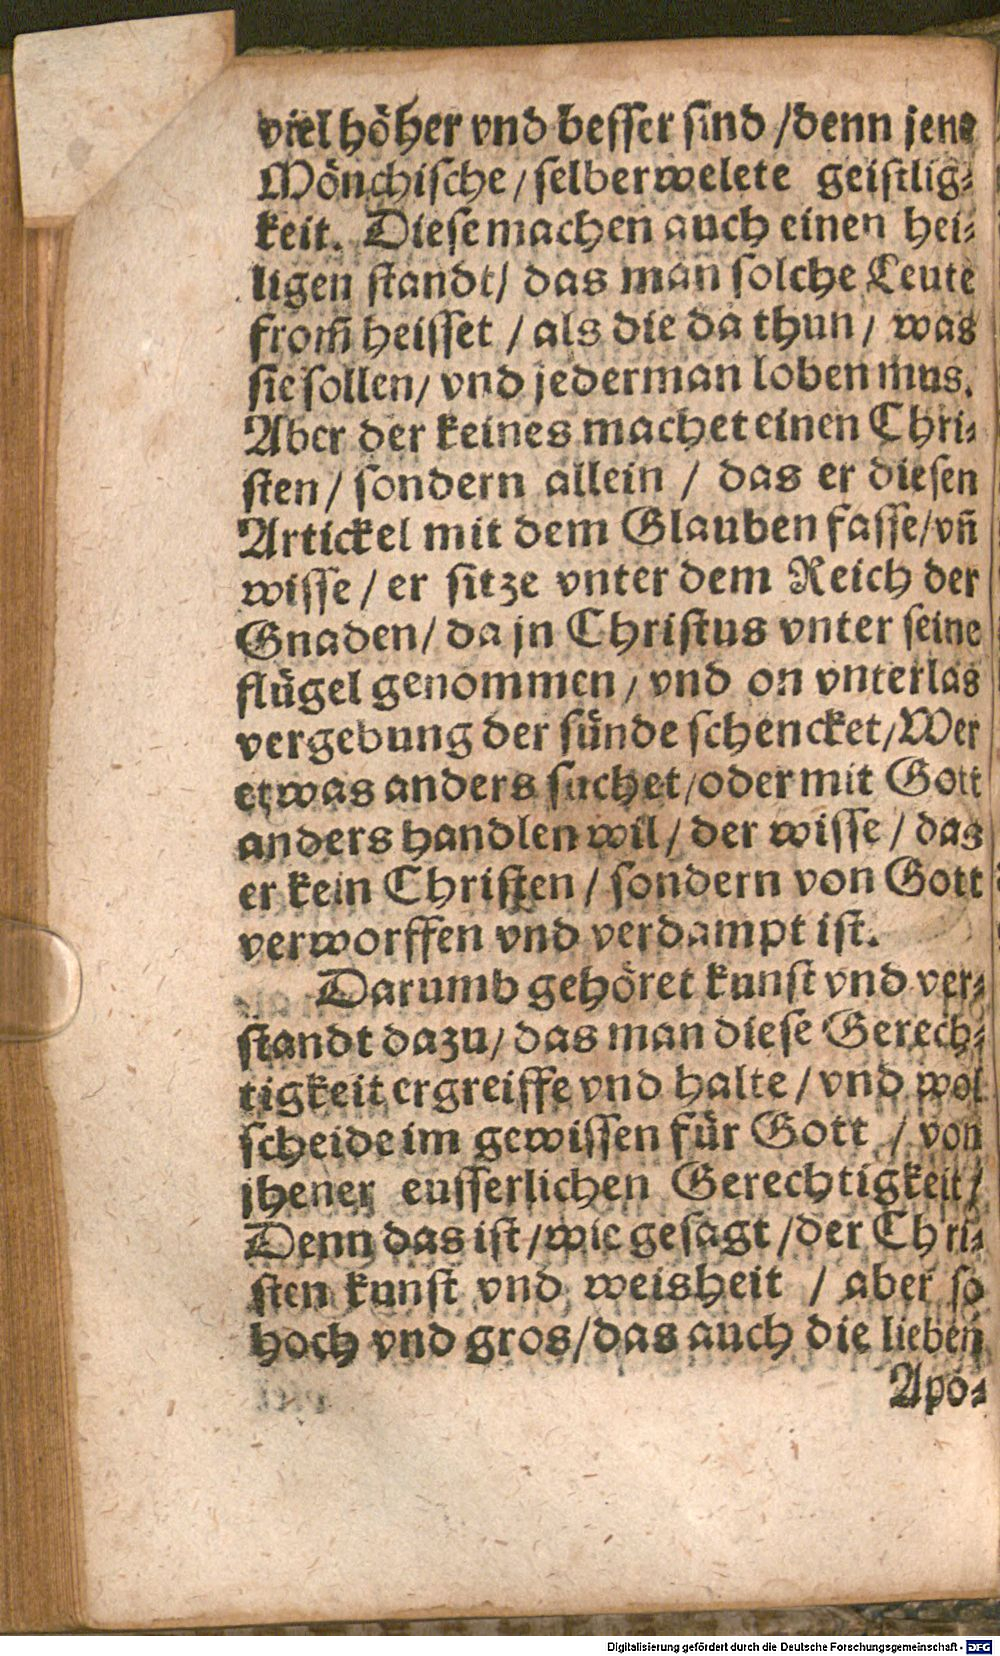 viel höher vnd besser sind /denn jene
Mönchische/selberwelete geistlig⸗
keit. Diese machen auch einen hei⸗
ligen standt/ das man solche Leute
from̃ heisset / als die da thun/ was
sie sollen/ vnd jederman loben mus.
Aber der keines machet einen Chri⸗
sten/ sondern allein / das er diesen
Artickel mit dem Glauben fasse/vñ
wisse/ er sitze vnter dem Reich der
Gnaden/ da jn Christus vnter seine
flügel genommen/ vnd on vnterlas
vergebung der sünde schencket/Wer
etwas anders suchet/oder mit Gott
anders handlen wil/ der wisse/ das
er kein Christen/ sondern von Gott
verworffen vnd verdampt ist.
Darumb gehöret kunst vnd ver⸗
standt dazu/ das man diese Gerech⸗
tigkeit ergreiffe vnd halte/ vnd wol
scheide im gewissen für Gott / von
jhener eusserlichen Gerechtigkeit/
Denn das ist/wie gesagt/der Chri⸗
sten kunst vnd weisheit / aber so
hoch vnd gros/das auch die lieben
Apo⸗
Digitalisierung gefördert durch die Deutsche Forschungsgemeinschaft - DFG